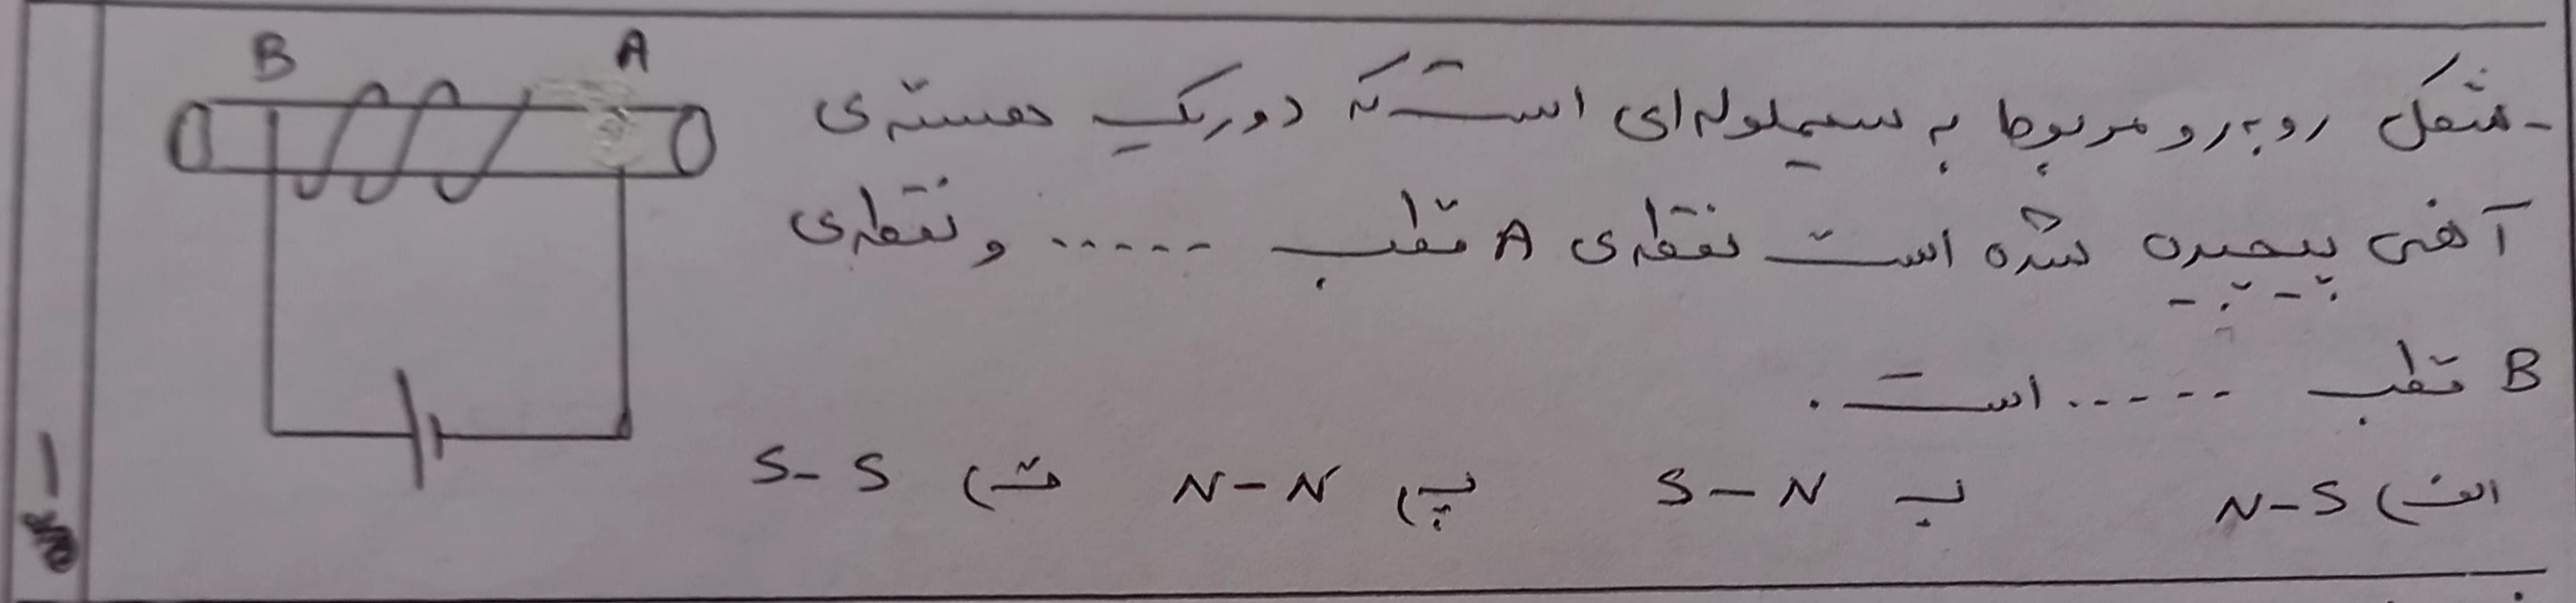 B A
- شکل روبرو مربوط به سیملوله‌ای است که دور یک هسته‌ی
آهنی پیچیده شده است نقطه‌ی A قطب ..... و نقطه‌ی
B قطب ..... است .
الف) N-S ب S-N پ) N-N ت) S-S